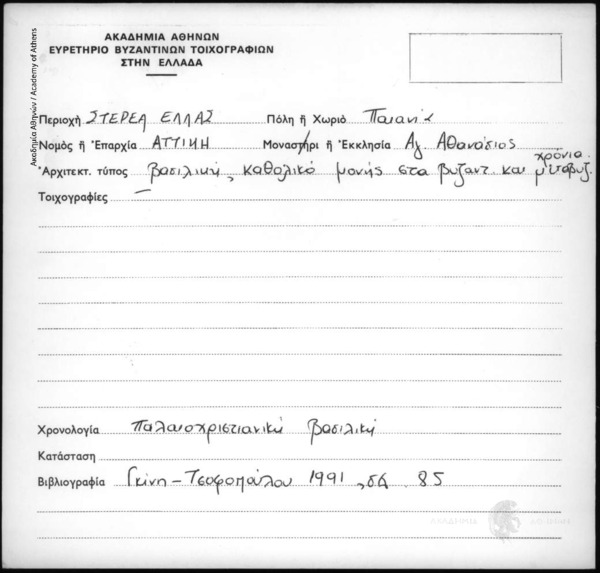 ΑΚΑΔΗΜΙΑ ΑΘΗΝΩΝ
ΕΥΡΕΤΗΡΙΟ ΒΥΖΑΝΤΙΝΩΝ ΤΟΙΧΟΓΡΑΦΙΩΝ
ΣΤΗΝ ΕΛΛΑΔΑ
Ακαδημία Αθηνών / Academy of Athens
Περιοχή ΣΤΕΡΕΑ ΕΛΛΑΣ Πόλη ἤ Χωριὸ Παιανία
Νομὸς ἤ Ἐπαρχία ΑΤΤΙΚΗ Μοναστήρι ἤ Ἐκκλησία Αγ. Αθανάσιος
Ἀρχιτεκτ. τύπος βασιλική, καθολικό μονής στα βυζαντ. και μεταβυζ. χρόνια
Τοιχογραφίες —
Χρονολογία Παλαιοχριστιανική βασιλική
Κατάσταση
Βιβλιογραφία Γκίνη-Τσοφοπούλου 1991, σελ. 85